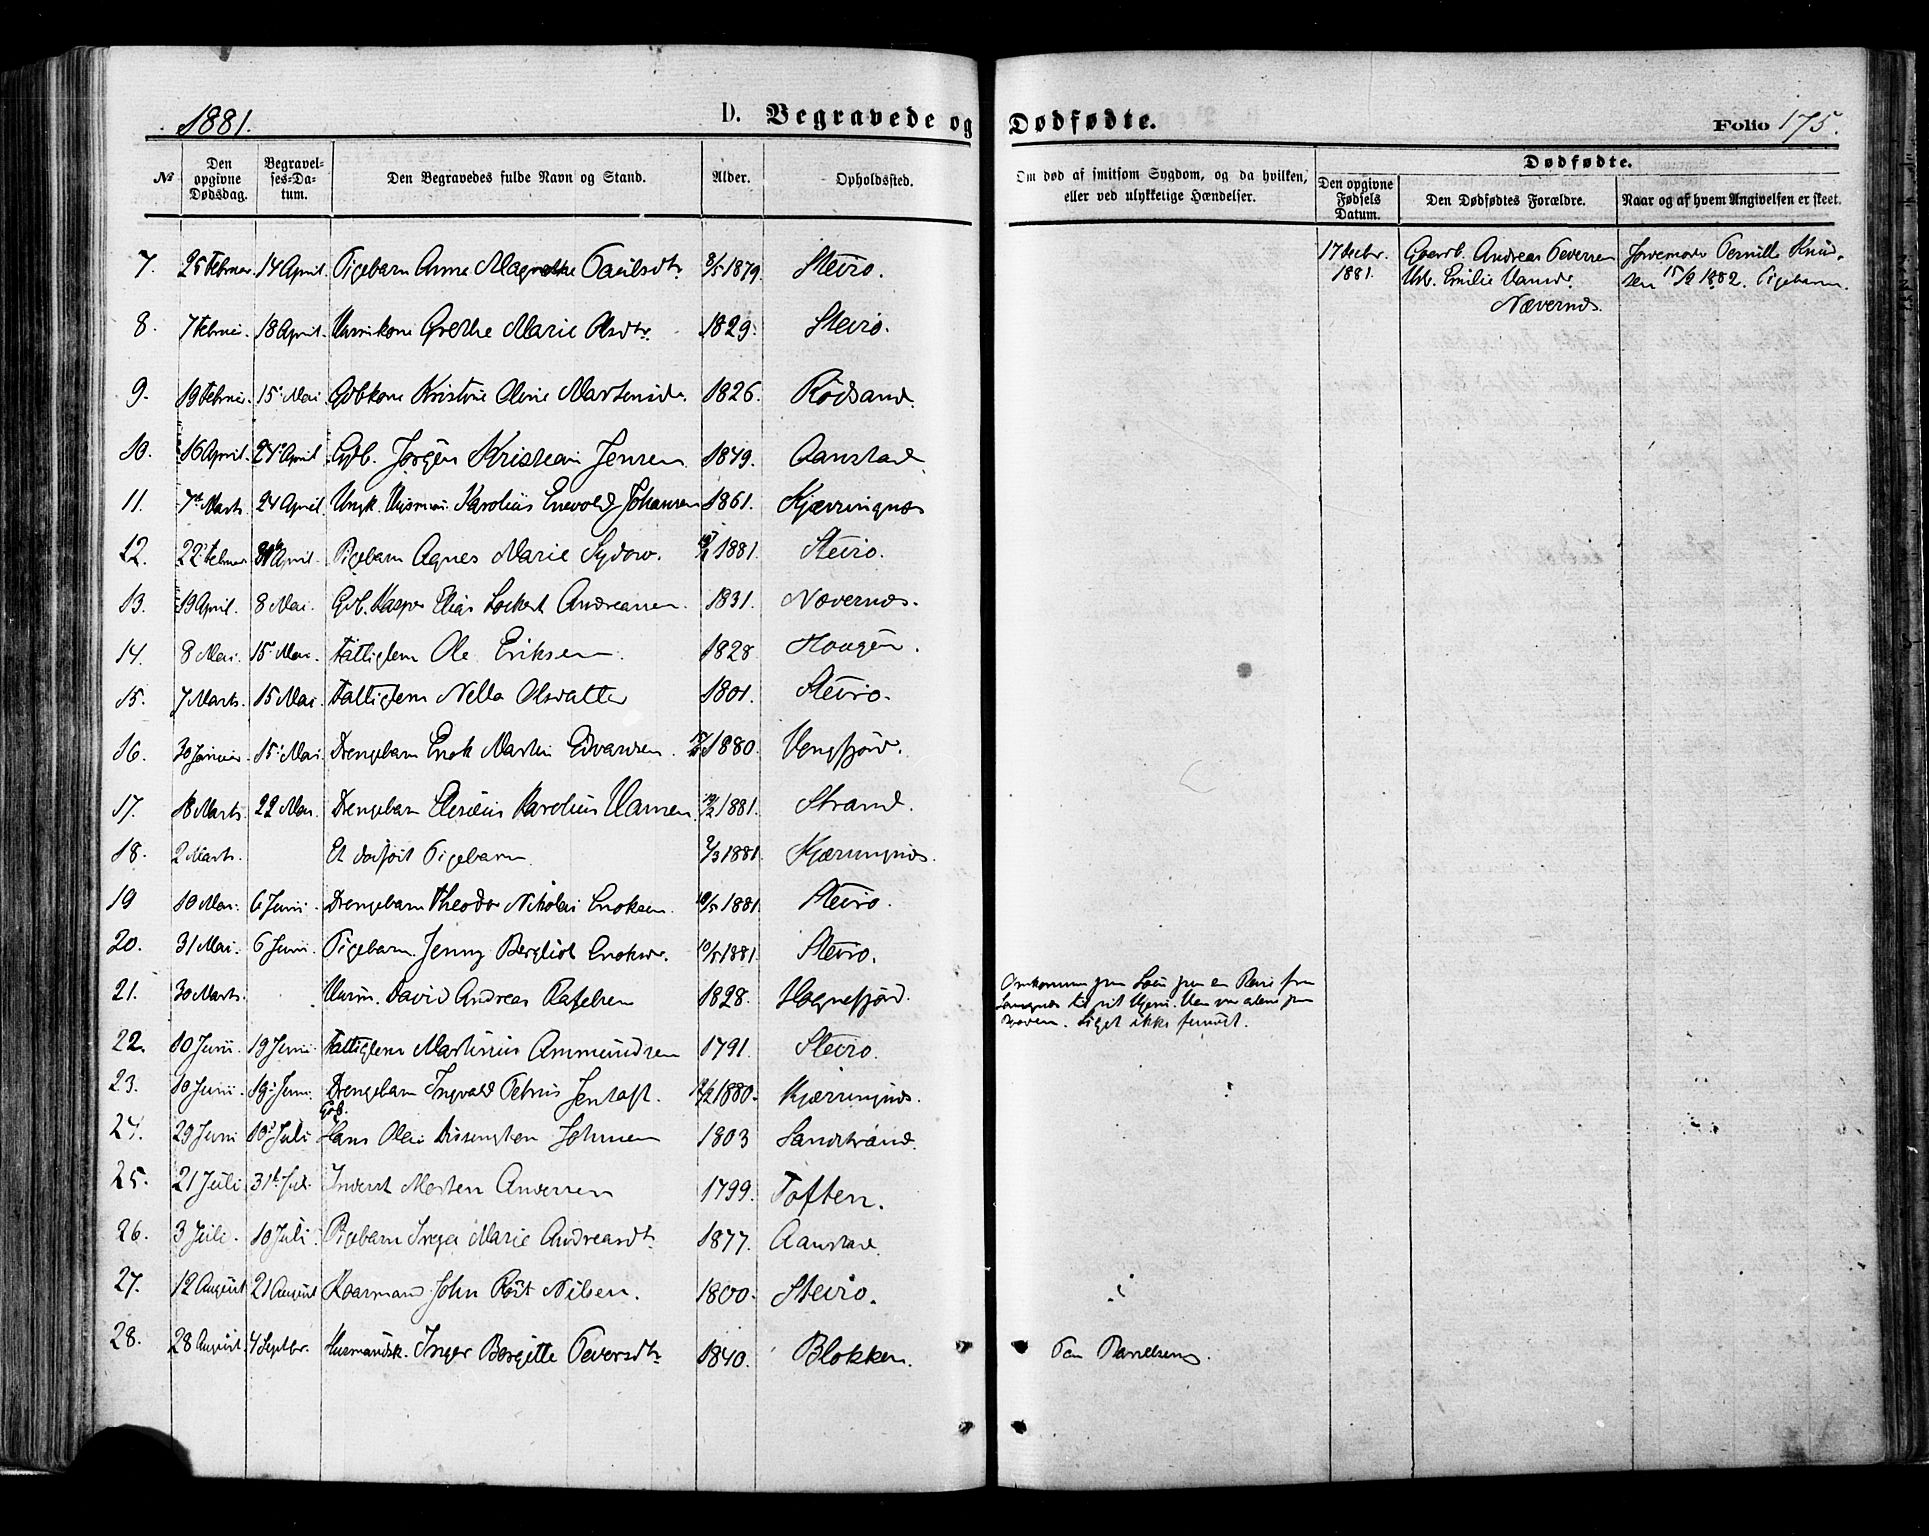 1881.
D. Begravede og Dødfødte.
Folio 175.
№
Den opgivne Dødsdag.
Begravel-ses-Da-tum.
Den Begravedes fulde Navn og Stand.
Alder.
Opholdssted.
Om død af smitsom Sygdom, og da hvilken, eller ved ulykkelige Hændelser.
Dødfødte.
Den opgivne Fødsels Datum.
Den Dødfødtes Forældre.
Naar og af hvem Angivelsen er skeet.
7. 25 Februar 14 April. Pigebarn Anne Magrethe Paulsdtr 1879. Steiro.
8. 7 Februar. 18 April. Grethe Marie Olsdtr. 1829. Steiro.
9. 19 Februar. 15 Mai Gbkone Kristine Oline 1826. Rødsand.
10. 16 April. 24 April Gb. Jørgen Kristian Jensen 1849. Aanstad.
11. 7 Marts 24 April. Ungk. Karolius Enevold Johansen 1861. Kjærringnes
12. 22 Februar April. Pigebarn Agnes Marie Sydow. 1881. Steiro.
13. 19 April. 8 Mai. Gb. Kasper Elias Lockert Andreassen. 1831. Nævernes.
14. 8 Mai. 15 Mai. Fattiglem Ole Eriksen. 1828 Haugen.
15. 7 Marts. 15 Mai. Fattiglem Nella Olsdatter 1801. Steiro.
16. 30 Januar 15 Mai Drengebarn Enok Martin Edvardsen. 1880. Vengfjord.
17. 18 Marts. 22 Mai. Drengebarn Karolius Hansen. 1881. Strand.
18. 2 Marts. Et dødfødt Pigebarn. 2/3 1881. Kjærringnes.
19 10 Mai. 6 Juni. Drengebarn Theodor Nikolai Enoksen. 10/5 1881. Steiro.
20. 31 Mai. 6 Juni. Pigebarn Jenny Bergliot 10/5 1881. Steiro.
21. 30 Marts. David Andreas Rafelsen 1828. Hognfjord. Omkommen paa Søen paa en Reise fra
til sit Hjem. Han var alene paa
Liget ikke fundet.
22. 10 Juni. 19 Juni. Fattiglem Martinus Ammundsen 1791. Steiro.
23. 10 Juni. 19 Juni. Drengebarn Ingvald Petrus Jentoft. 1880. Kjærringnes.
24. 29 Juni 10 Juli Gb. Hans Olai Johnsen 1803 Sandstrand.
25. 21 Juli 31 Jul. Inderst Morten Andersen 1799. Toften.
26. 3 Juli. 10 Juli. Pigebarn Inga Marie Andreasdtr 1877. Aanstad.
27. 12 August 21 August Kaarmand John Røst Nilsen. 1800. Steiro.
28. 28 August. 4 Septbr. Husmandsk. Inger Bergitte Pedersdtr 1840. Blokken.
17 Decbr. 1881. Gaardb. Andreas Pedersen
Emilie Hansd.
Nævernes.
Jordemoder Pernille Knud-
sen 15/2 1882. Pigebarn.